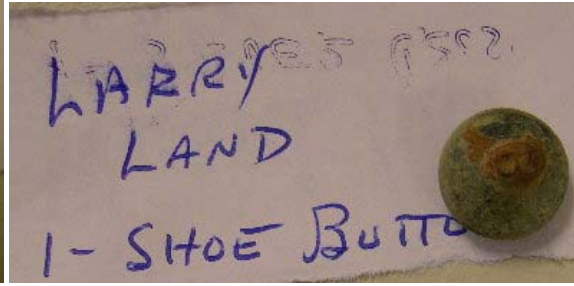 LARRY
LAND
1- SHOE BUTTO